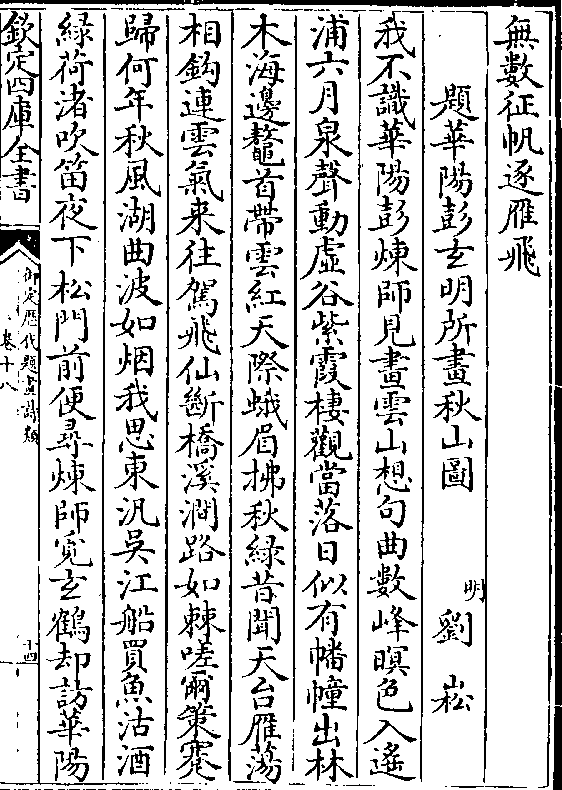 無數征帆逐雁飛
題華陽彭玄明所畫秋山圖 明 劉崧
我不識華陽彭煉師見畫雲山想句曲數峰暝色入遙
浦六月泉聲動虛谷紫霞棲觀當落日似有幡幢出林
木海邊鼇首帶雲紅天際蛾眉拂秋緑昔聞天台雁蕩
相鈎連雲氣来往駕飛仙斷橋溪澗路如棘嗟爾策蹇
歸何年秋風湖曲波如烟我思東汎吳江船買魚沽酒
緑荷渚吹笛夜下松門前便尋煉師覓玄鶴却訪華陽
欽定四庫全書
御定歴代題畫詩類
卷十八
十四